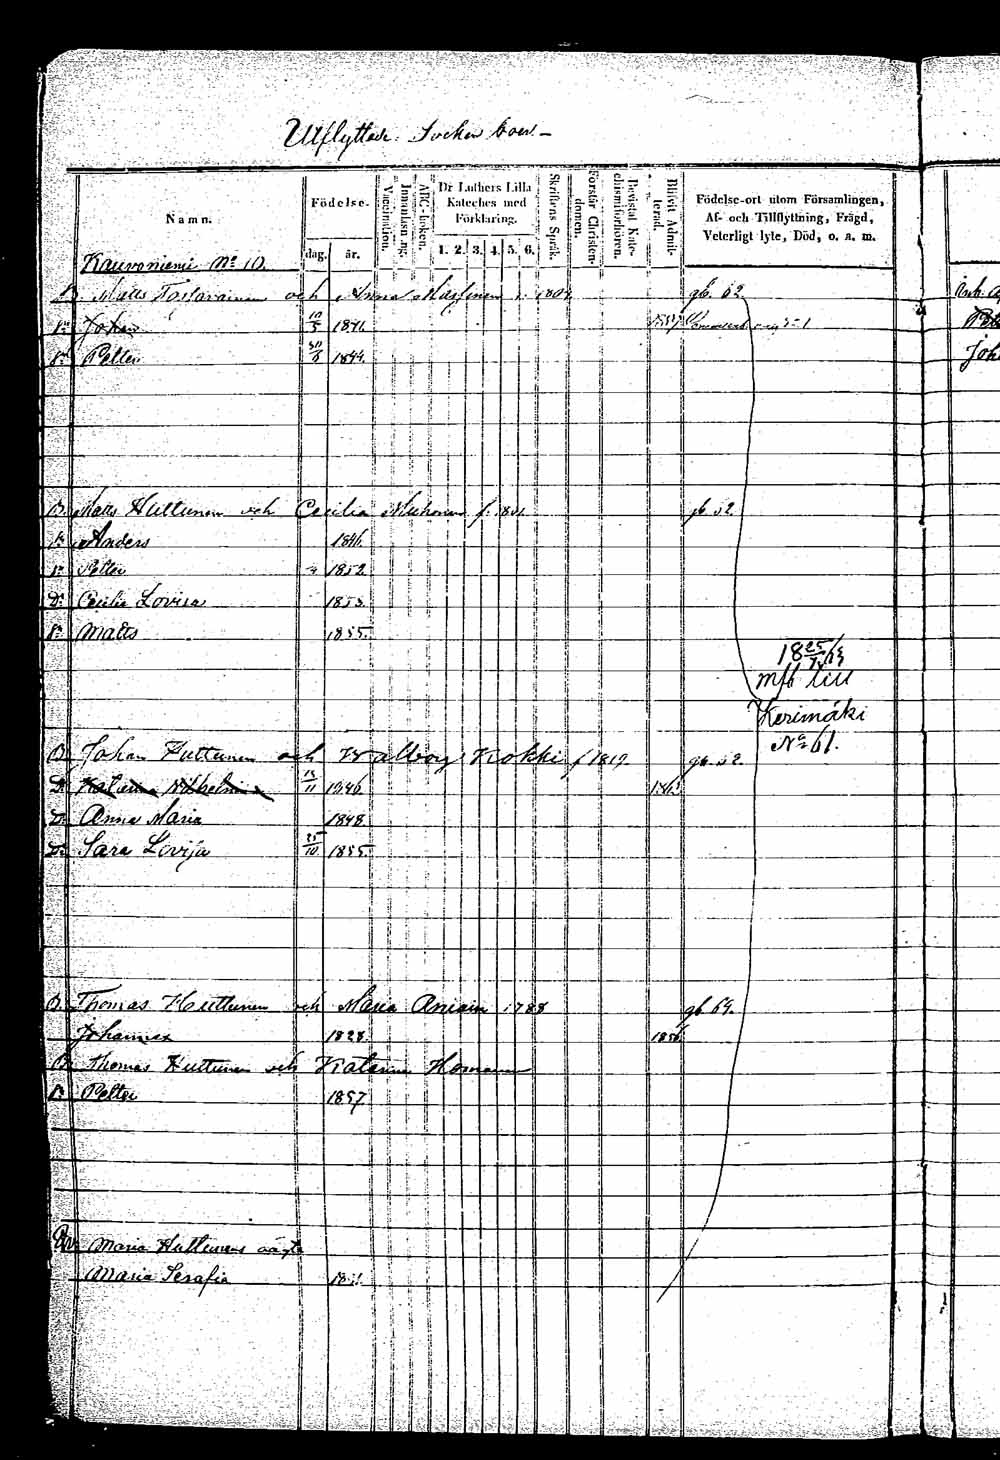 Utflyttade Socken boer
Namn.
Födelse-
dag. år.
Vaccination.
Innanläsning.
ABC-boken.
Dr Luthers Lilla
Kateches med
Förklaring.
1. 2. 3. 4. 5. 6.
Skriftens Språk.
Förstår Christen-
domen.
Bevistat Kate-
chismiförhören.
Blifvit Admit-
terad.
Födelse-ort utom Församlingen,
Af- och Tillflyttning, Frägd,
Veterligt lyte, Död, o. a. m.
Kauvoniemi No 10.
B. Matts och Anna 1804 gb. 62.
Sn Johan 10/5 1841.
Sn Petter 30/6 1844.
B. Matts Huttunen och Cecilia f. 1801 gb. 52.
Sn Anders 1846.
Sn Petter 1852
Dr Cecilia Lovisa 1853
Sn Matts 1855.
18 25/7 63
mfb till
Kerimäki
No 61.
B. Johan Huttunen och Walborg Kokki f 1819. gb. 52.
Dr Katarina Wilhelmina 13/11 1846
Dr Anna Maria 1848
Dr Sara Lovisa 25/10 1855.
B. Thomas Huttunen och Maria 1788 gb 64.
Johannes 1828. 1856
B. Thomas Huttunen och Katarina
Sn Petter 1857
Maria Huttunens oägta
Maria Serafia